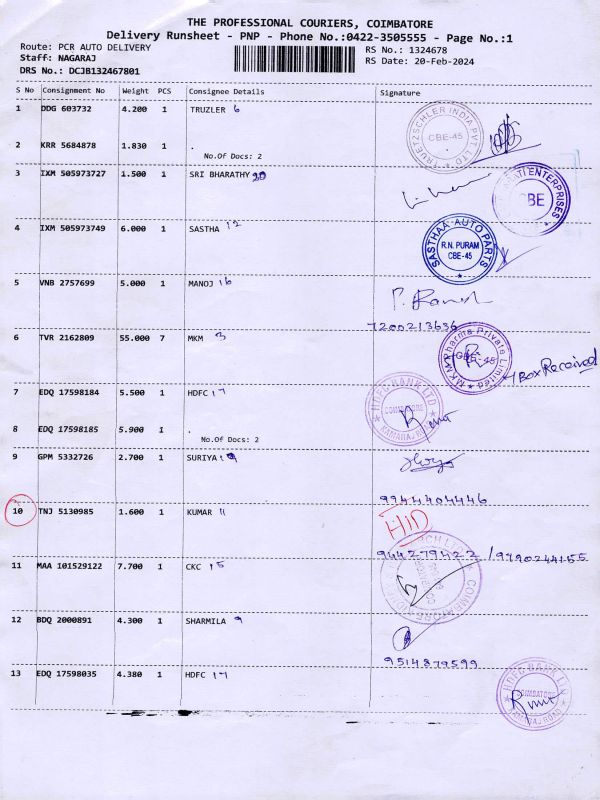 THE PROFESSIONAL COURIERS, COIMBATORE
Delivery Runsheet - PNP - Phone No.:0422-3505555 - Page No.:1
Route: PCR AUTO DELIVERY
RS No.: 1324678
Staff: NAGARAJ
RS Date: 20-Feb-2024
DRS No.: DCJB132467801
S No Consignment No Weight PCS Consignee Details Signature
1 DDG 603732 4.200 1 TRUZLER 6
TRUETZSCHLER INDIA PVT. LTD
CBE-45
2 KRR 5684878 1.830 1 .
No.Of Docs: 2
3 IXM 505973727 1.500 1 SRI BHARATHY 20
ENTERPRISES
CBE
4 IXM 505973749 6.000 1 SASTHA 12
SASTHAA AUTO PARTS
R.N. PURAM
CBE-45
5 VNB 2757699 5.000 1 MANOJ 16
7200213636
6 TVR 2162809 55.000 7 MKM 3
MKM Pharma Private Limited
CBE-45
Box Received
7 EDQ 17598184 5.500 1 HDFC 17
HDFC BANK LTD
COIMBATORE
8 EDQ 17598185 5.900 1 .
No.Of Docs: 2
9 GPM 5332726 2.700 1 SURIYA 19
9944404446
10 TNJ 5130985 1.600 1 KUMAR 11
H/D
944279422 / 9790244155
11 MAA 101529122 7.700 1 CKC 15
12 BDQ 2000891 4.300 1 SHARMILA 9
9514879599
13 EDQ 17598035 4.380 1 HDFC 17
HDFC BANK LTD
COIMBATORE